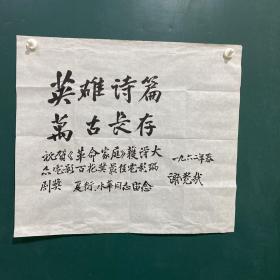 英雄诗篇
萬古长存
祝贺《革命家庭》獲得大
众電影百花奖最佳電影编
剧奖 夏衍、水华同志留念
一九六二年春
谢觉哉